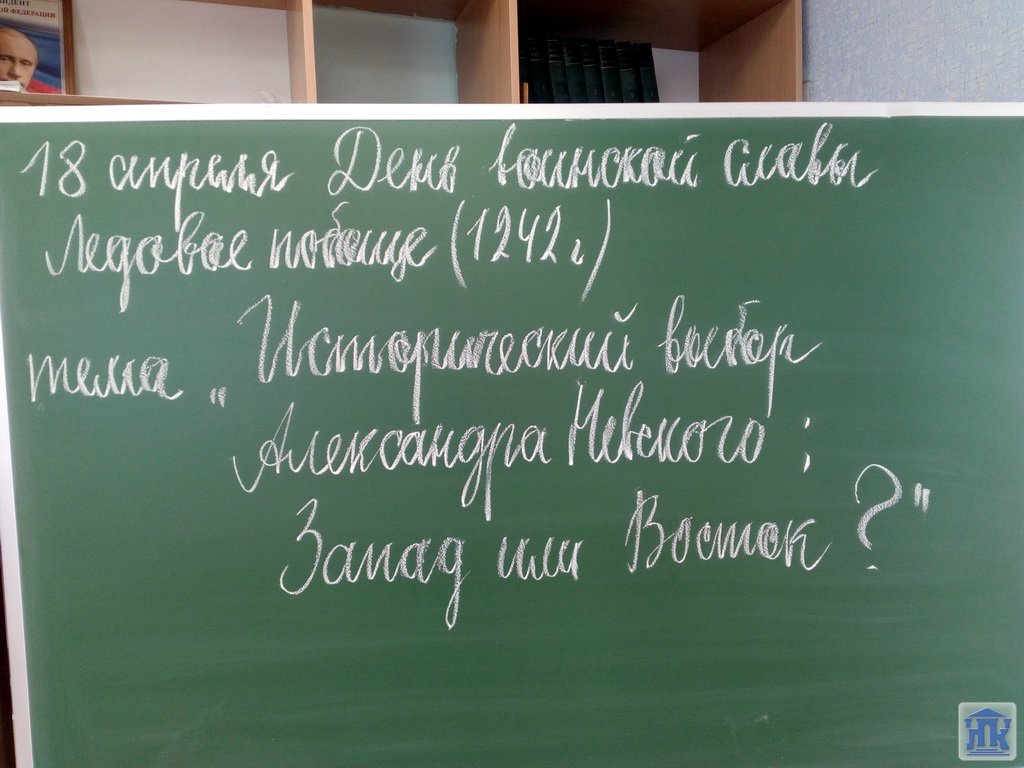 ИДЕНТ
ОЙ ФЕДЕРАЦИИ
18 апреля День воинской славы
Ледовое побоище (1242 г)
тема „Исторический выбор
Александра Невского :
Запад или Восток ?"